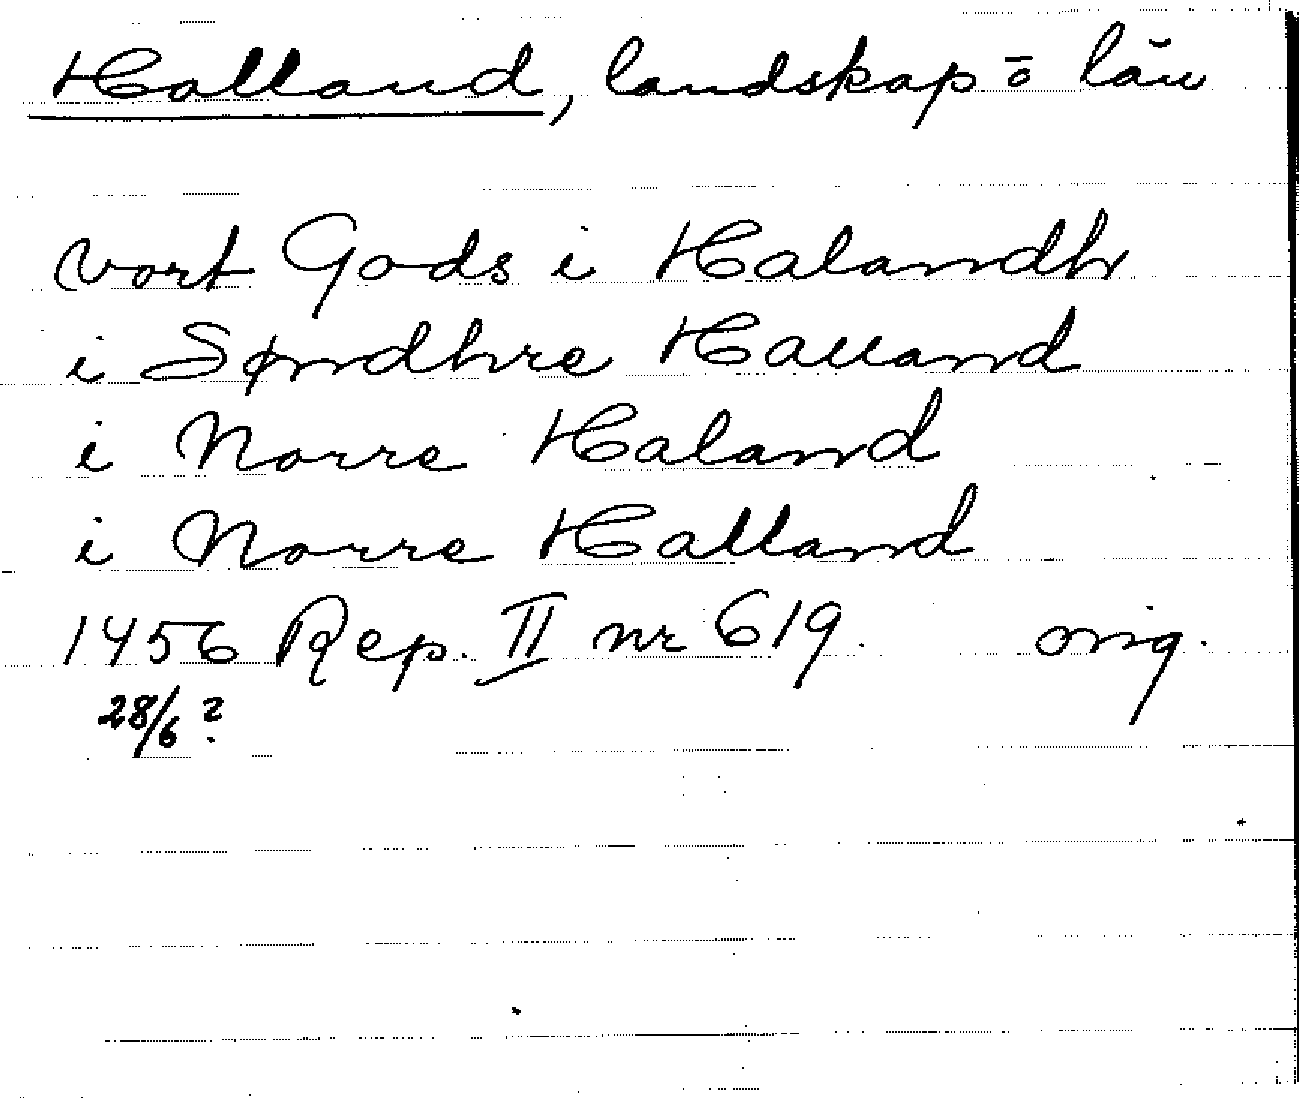 Halland, landskap o län
vort Gods i Halandh
i Søndhre Halland
i Norre Haland
i Norre Halland
1456 Rep. II nr 619. orig.
28/6 ?